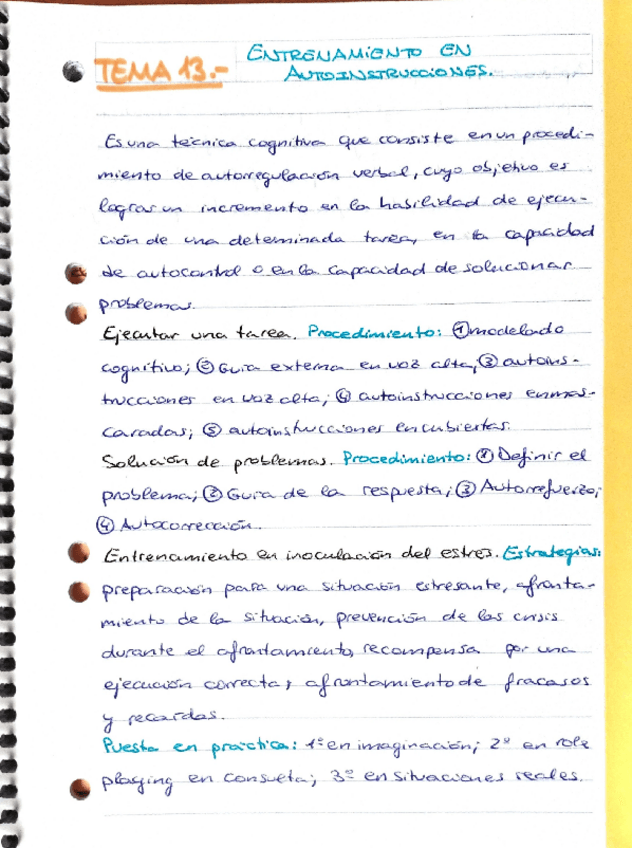 TEMA 13.- ENTRENAMIENTO EN
AUTOINSTRUCCIONES.
Es una técnica cognitiva que consiste en un procedi-
miento de autorregulación verbal, cuyo objetivo es
lograr un incremento en la habilidad de ejecu-
ción de una determinada tarea, en la capacidad
de autocontrol o en la capacidad de solucionar
problemas.
Ejecutar una tarea. Procedimiento: ① modelado
cognitivo; ② Guía externa en voz alta, ③ autoins-
trucciones en voz alta; ④ autoinstrucciones enmas-
caradas; ⑤ autoinstrucciones encubiertas.
Solución de problemas. Procedimiento: ① Definir el
problema; ② Guía de la respuesta; ③ Autorrefuerzo;
④ Autocorrección.
Entrenamiento en inoculación del estres. Estrategias:
preparación para una situación estresante, afronta-
miento de la situación, prevención de las crisis
durante el afrontamiento, recompensa por una
ejecución correcta, afrontamiento de fracasos
y recaídas.
Puesta en práctica: 1º en imaginación; 2º en role
playing en consulta; 3º en situaciones reales.